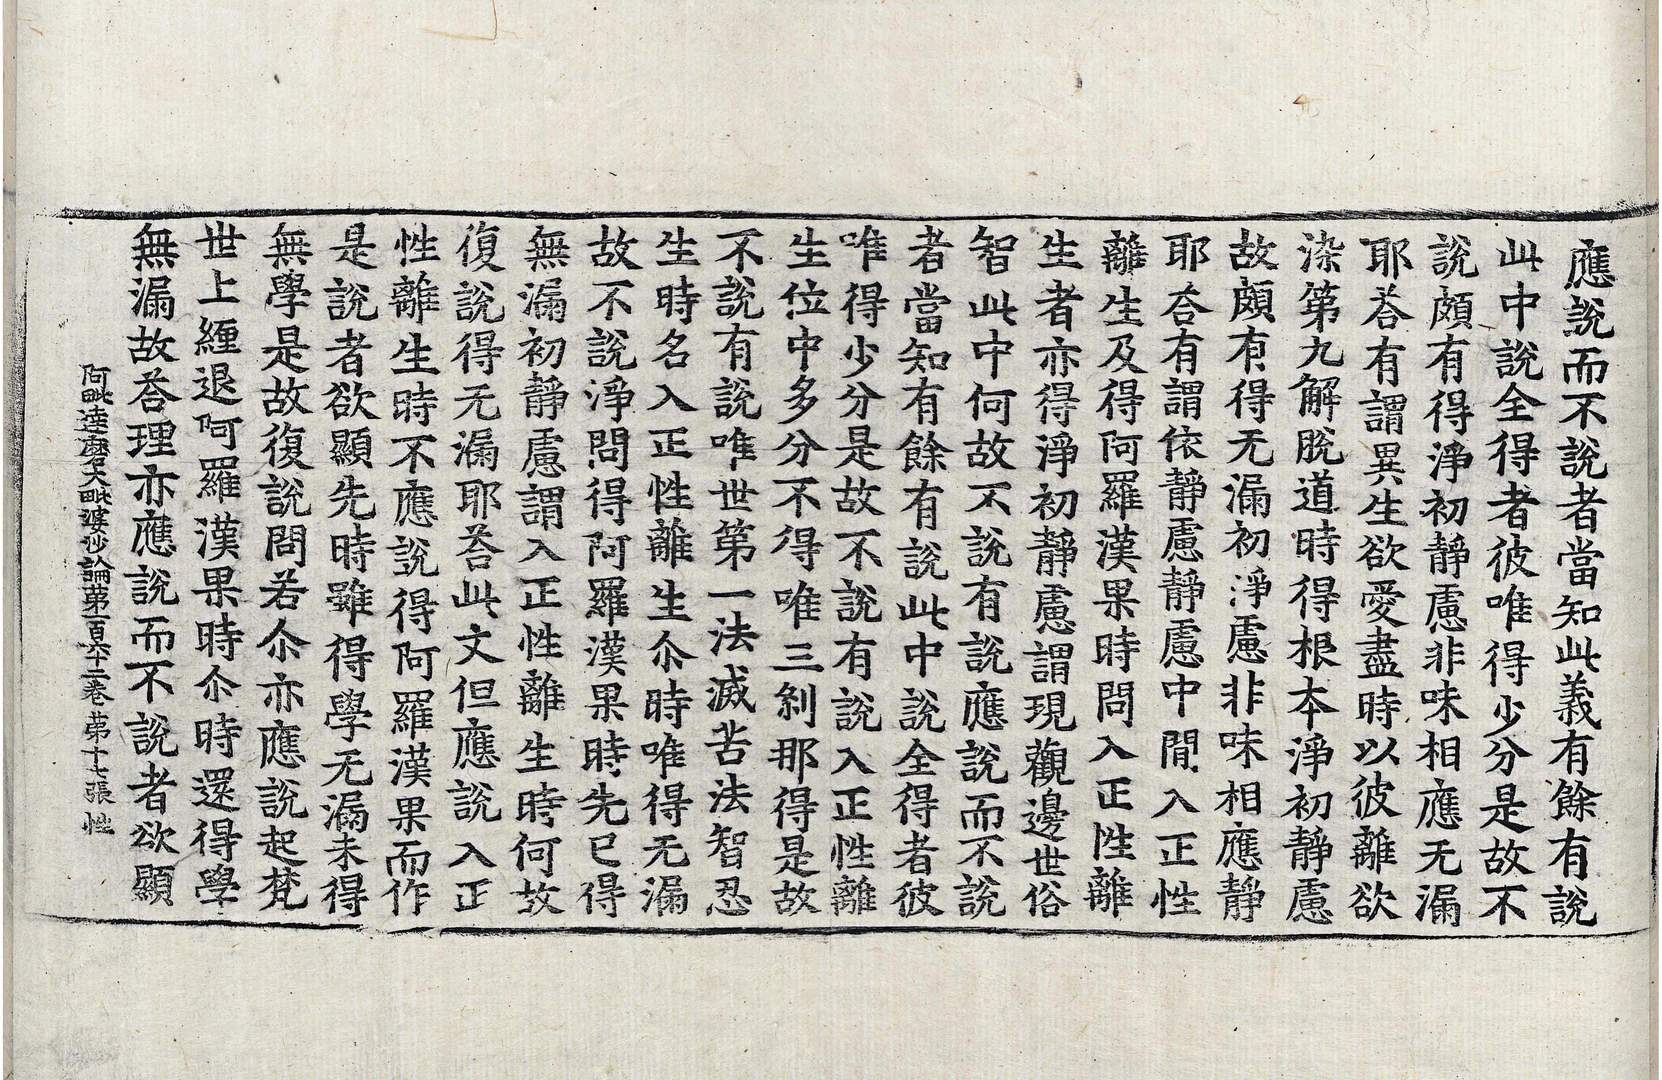 應說而不說者當知此義有餘有說
此中說全得者彼唯得少分是故不
說頗有得淨初靜慮非味相應无漏
耶荅有謂異生欲愛盡時以彼離欲
染第九解脫道時得根本淨初靜慮
故頗有得无漏初淨慮非味相應靜
耶荅有謂依靜慮靜慮中閒入正性
離生及得阿羅漢果時問入正性離
生者亦得淨初靜慮謂現觀邊世俗
智此中何故不說有說應說而不說
者當知有餘有說此中說全得者彼
唯得少分是故不說有說入正性離
生位中多分不得唯三刹那得是故
不說有說唯世第一法滅苦法智忍
生時名入正性離生尒時唯得无漏
故不說淨問得阿羅漢果時先已得
無漏初靜慮謂入正性離生時何故
復說得无漏耶荅此文但應說入正
性離生時不應說得阿羅漢果而作
是說者欲顯先時雖得學无漏未得
無學是故復說問若尒亦應說起梵
世上纏退阿羅漢果時尒時還得學
無漏故荅理亦應說而不說者欲顯
阿毗達磨大毗婆沙論第一百六十二卷 第十七張 性